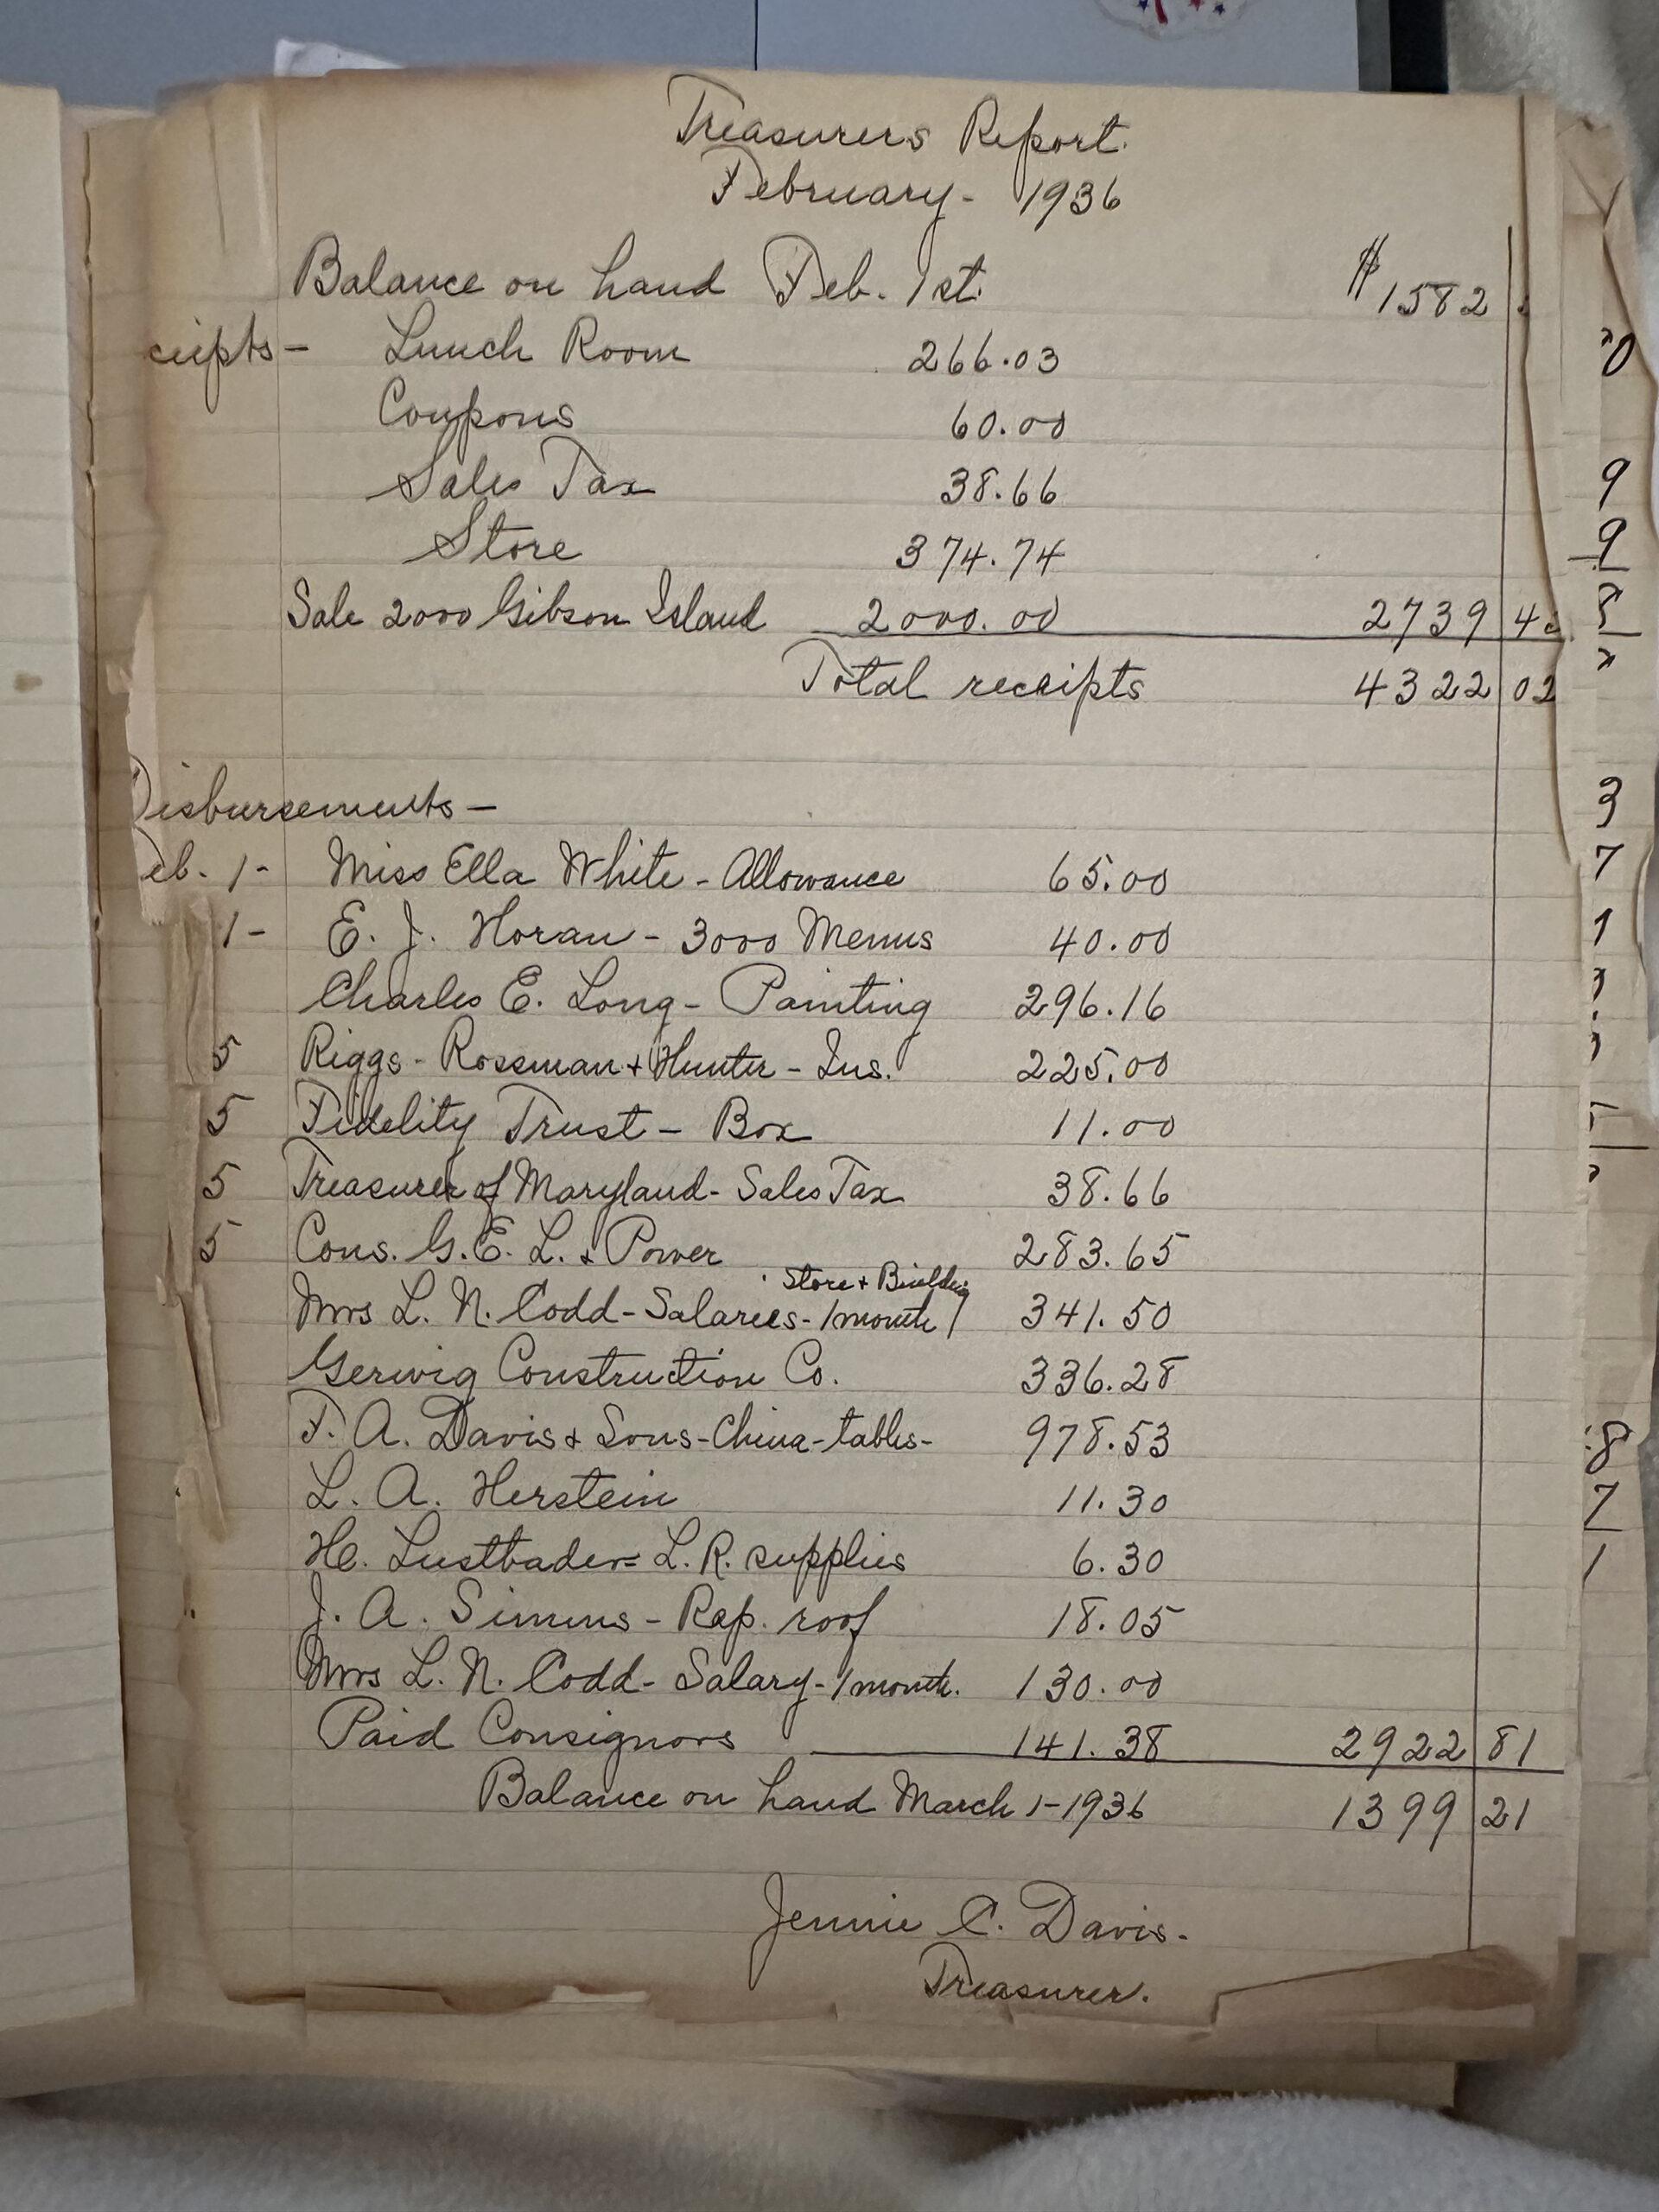 Treasurers Report.
February - 1936
Balance on hand Feb. 1st. $1582
ceipts - Lunch Room 266.03
Coupons 60.00
Sales Tax 38.66
Store 374.74
Sale 2000 Gibson Island 2000.00 2739 4
Total receipts 4322 02
Disbursements -
eb. 1- Miss Ella White - Allowance 65.00
1- E. J. Horan - 3000 Menus 40.00
Charles E. Long - Painting 296.16
5 Riggs - Rossman + Hunter - Ins. 225.00
5 Fidelity Trust - Box 11.00
5 Treasurer of Maryland - Sales Tax 38.66
5 Cons. G. E. L. & Power 283.65
Store + Building
Mrs L. N. Codd - Salaries - 1 month 341.50
Gerwig Construction Co. 336.28
F. A. Davis & Sons - China - tables - 978.53
L. A. Herstein 11.30
H. Lustbader = L. R. supplies 6.30
J. A. Simms - Rep. roof 18.05
Mrs L. N. Codd - Salary - 1 month. 130.00
Paid Consignors 141.38 2922 81
Balance on hand March 1-1936 1399 21
Jennie C. Davis.
Treasurer.